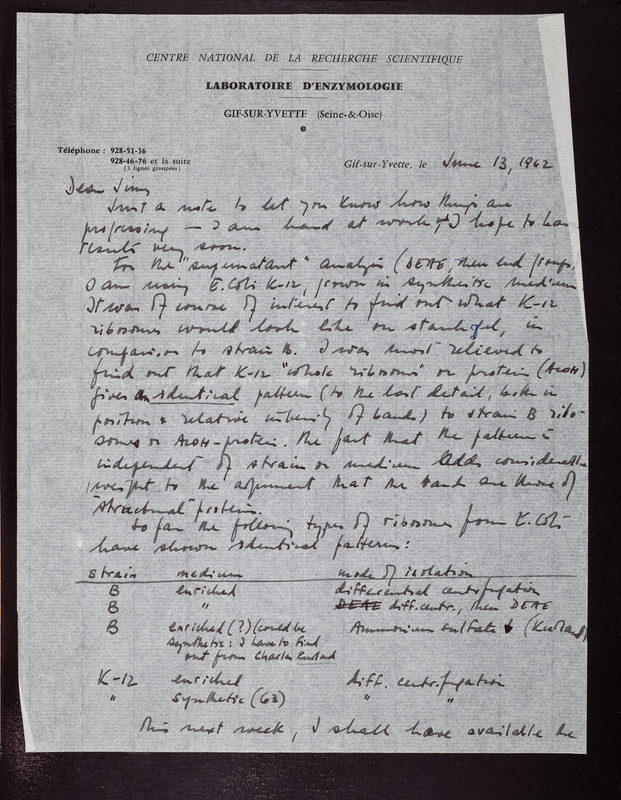 CENTRE NATIONAL DE LA RECHERCHE SCIENTIFIQUE
LABORATOIRE D'ENZYMOLOGIE
GIF-SUR-YVETTE (Seine-&-Oise)
Téléphone : 928-51-36
928-46-76 et la suite
(3 lignes groupées)
Gif-sur-Yvette, le June 13, 1962
Dear Jim,
Just a note to let you know how things are
progressing — I am hard at work & I hope to have
results very soon.
For the "supernatant" analysis (DEAE, then end groups)
I am using E. Coli K-12, grown in synthetic medium
It was of course of interest to find out what K-12
ribosomes would look like on starch gel, in
comparison to strain B. I was most relieved to
find out that K-12 "whole ribosome" or protein (AcOH)
gives an identical pattern (to the last detail, both in
position & relative intensity of bands) to strain B ribo-
somes or AcOH-protein. The fact that the pattern is
independent of strain or medium adds considerable
weight to the argument that the bands are those of
"structural" protein.
So far the following types of ribosomes from E. Coli
have shown identical patterns:
strain medium mode of isolation
B enriched differential centrifugation
B " DEAE diff. centr., then DEAE
B enriched (?) (could be Ammonium sulfate ↓ (Kurland)
synthetic: I have to find
out from Charles Kurland
K-12 enriched diff. centrifugation
" synthetic (63) " "
This next week, I shall have available the